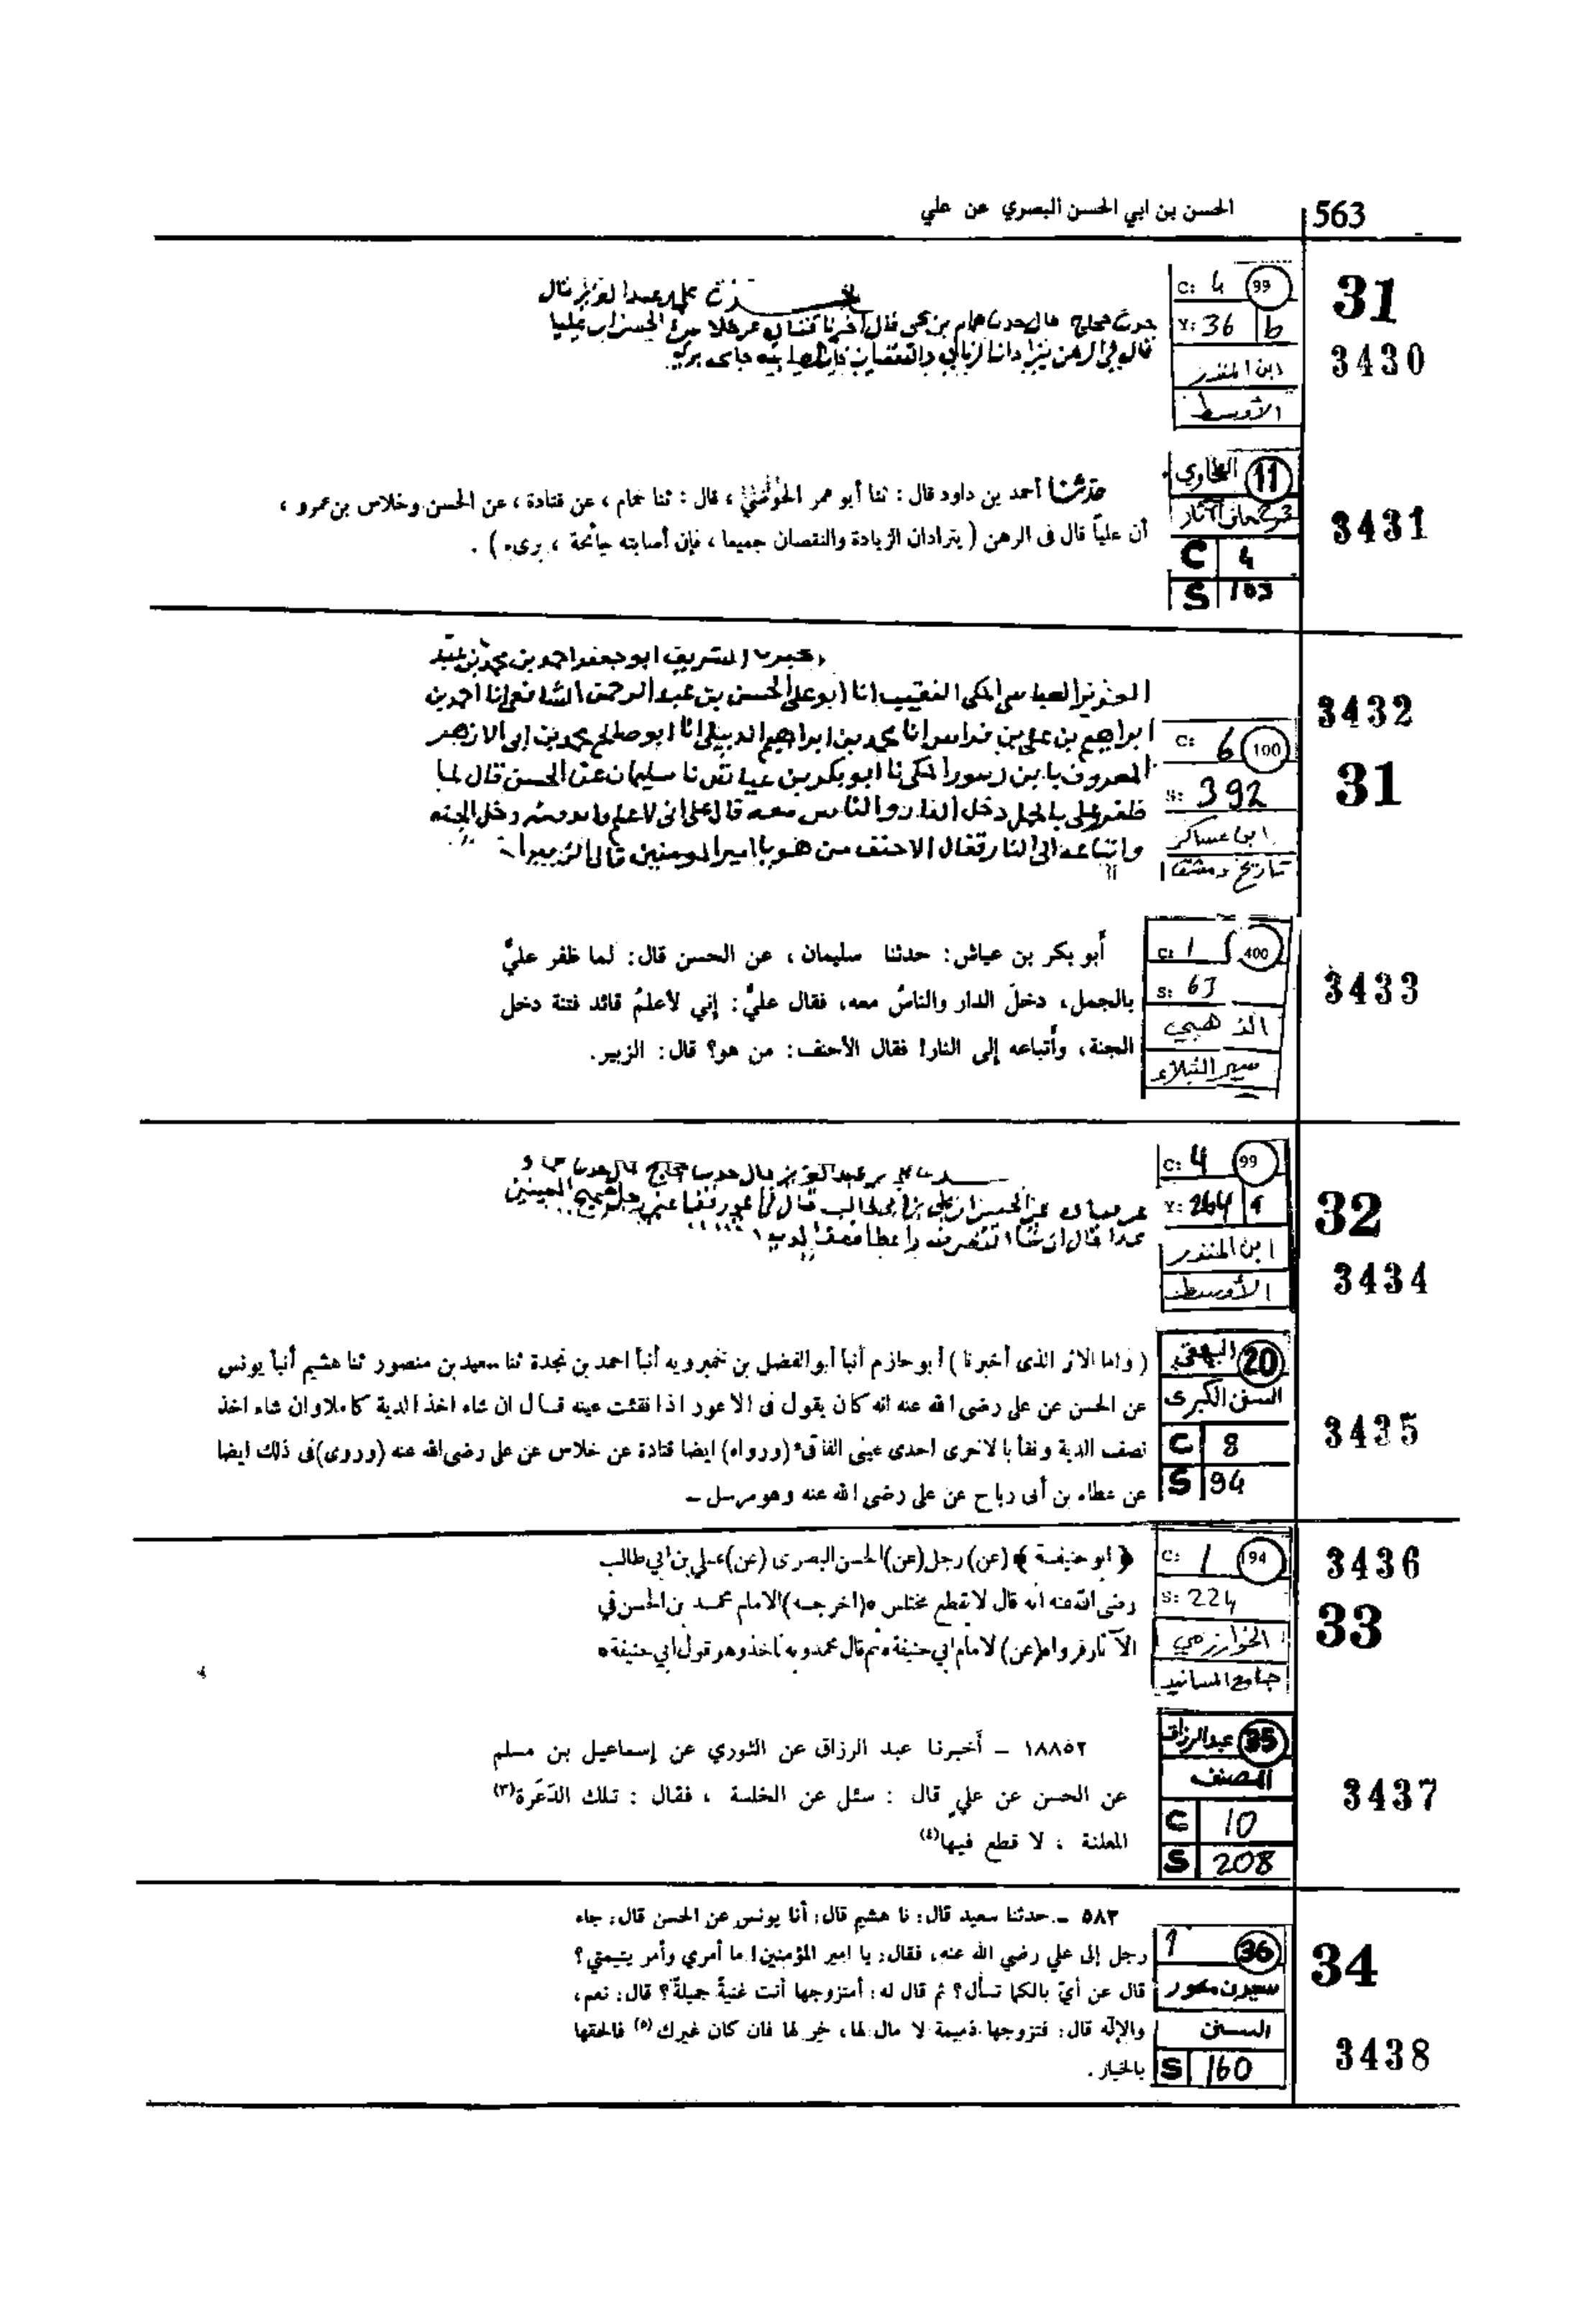 563 الحسن بن ابي الحسن البصري عن علي
31
3430
C: 4 99
Y: 36 b
ابن المنذر
الأوسط
علي بن عبد العزيز قال
حدثنا حجاج قال حدثنا همام بن يحيى قال أخبرنا قتادة عن خلاس الحسن أن عليا
قال في الرهن يترادان الزيادة والنقصان
3431
الطحاوي 11
شرح معاني الآثار
C 4
S 103
حدثنا أحمد بن داود قال : ثنا أبو عمر الحوضي ، قال : ثنا همام ، عن قتادة ، عن الحسن وخلاس بن عمرو ،
أن علياً قال فى الرهن ( يترادان الزيادة والنقصان جميعا ، فإن أصابته جائحة ، برىء ) .
3432
31
C: 6 100
S: 392
ابن عساكر
تاريخ دمشق
اخبرنا الشريف ابو جعفر احمد بن محمد بن عبد
العزيز العباسي المكي النقيب انا ابو علي الحسن بن عبد الرحمن الشافعي انا احمد بن
ابراهيم بن علي بن فراس انا محمد بن ابراهيم الديبلي انا ابو صالح محمد بن ابي الازهر
المعروف بابن زنبور المكي نا ابو بكر بن عياش نا سليمان عن الحسن قال لما
ظفر علي بالجمل دخل الدار والناس معه قال علي اني لاعلم قائد فتنة دخل الجنه
واتباعه الى النار فقال الاحنف من هو يا امير المومنين قال الزبير
3433
C: 1 400
S: 63
الذهبي
سير النبلاء
أبو بكر بن عياش: حدثنا سليمان ، عن الحسن قال: لما ظفر عليٌّ
بالجمل، دخلَ الدار والناسُ معه، فقال عليٌّ: إني لأعلمُ قائد فتنة دخل
الجنة، وأتباعه إلى النار! فقال الأحنف: من هو؟ قال: الزبير.
32
3434
C: 4 99
Y: 264
ابن المنذر
الأوسط
علي بن عبد العزيز قال حدثنا حجاج قال حدثنا
عن الحسن ان علي بن ابي طالب قال في اعور فقأ عين رجل صحيح العينين
عمدا قال ان شاء
3435
البيهقي 20
السنن الكبرى
C 8
S 94
( واما الاثر الذى أخبرنا ) أبو حازم أنبأ أبو الفضل بن خميرويه أنبأ احمد بن نجدة ثنا سعيد بن منصور ثنا هشيم أنبأ يونس
عن الحسن عن على رضى الله عنه انه كان يقول فى الاعور اذا فقئت عينه قال ان شاء اخذ الدية كاملا وان شاء اخذ
نصف الدية وفقأ بالاخرى احدى عينى الفاقىء (ورواه) ايضا قتادة عن خلاس عن على رضى الله عنه (وروى) فى ذلك ايضا
عن عطاء بن أبى رباح عن على رضى الله عنه وهو مرسل ـ
3436
33
C: 1 194
S: 224
الخوارزمي
جامع المسانيد
﴿ ابو حنيفة ﴾ (عن) رجل (عن) الحسن البصرى (عن) على بن ابي طالب
رضى الله عنه انه قال لا يقطع مختلس ٥ (اخرجه) الامام محمد بن الحسن في
الآثار فرواه (عن) الامام ابي حنيفة ثم قال محمد وبه ناخذ وهو قول ابي حنيفة ٥
3437
عبد الرزاق 35
المصنف
C 10
S 208
١٨٨٥٢ – أخبرنا عبد الرزاق عن الثوري عن إسماعيل بن مسلم
عن الحسن عن علي قال : سئل عن الخلسة ، فقال : تلك الدّعَرة(٣)
المعلنة ، لا قطع فيها(٤)
34
3438
1 36
سعيد بن منصور
السنن
S 160
٥٨٣ ـ حدثنا سعيد قال: نا هشيم قال: أنا يونس عن الحسن قال: جاء
رجل إلى علي رضي الله عنه، فقال: يا امير المؤمنين! ما أمري وأمر يتيمتي؟
قال عن أيّ بالكما تسأل؟ ثم قال له: أمتزوجها أنت غنيةً جميلةً؟ قال: نعم،
والإلّه قال: فتزوجها ذميمة لا مال لها، خِر لها فان كان غيرك (٥) فالحقها
بالخيار .